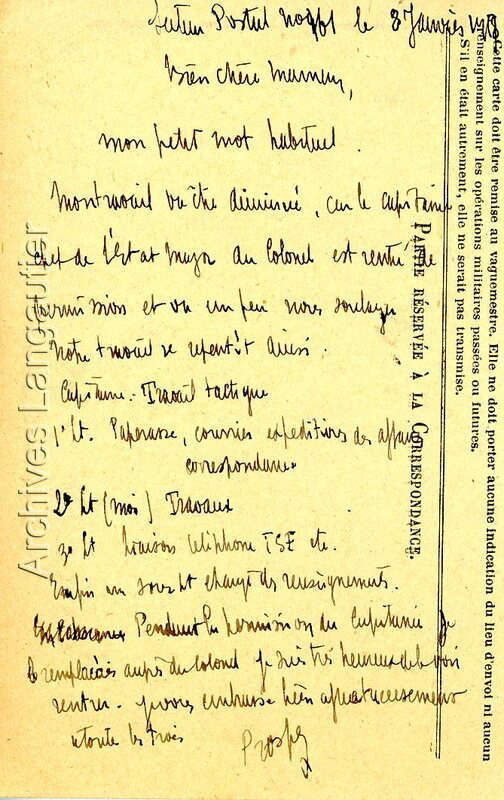 Secteur Postal no 161 le 8 Janvier
Bien chère Maman,
mon petit mot habituel.
Mon travail va être diminué, car le capitaine
chef de l'Etat Major du Colonel est rentré de
permission et va un peu nous soulager
Notre travail se répartit ainsi.
Capitaine. Travail tactique
1er Lt. Paperasse, courrier expéditions des affaires
correspondance
2e Lt (moi) Travaux
3e Lt liaison téléphone TSF etc.
Enfin un sous Lt chargé des renseignements.
Pendant la permission du Capitaine je
le remplaçais auprès du Colonel je suis très heureux de le voir
rentrer. je vous embrasse bien affectueusement
toute les trois
Prosper
PARTIE RÉSERVÉE À LA CORRESPONDANCE.
Cette carte doit être remise au vaguemestre. Elle ne doit porter aucune indication du lieu d'envoi ni aucun
renseignement sur les opérations militaires passées ou futures.
S'il en était autrement, elle ne serait pas transmise.
Archives Langautier